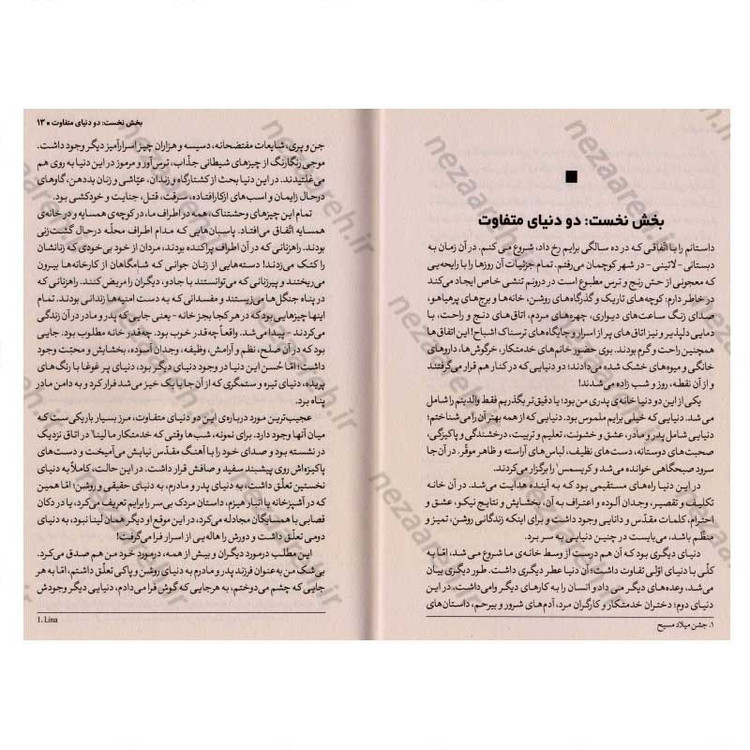 بخش نخست: دو دنیای متفاوت
داستانم را با اتّفاقی که در ده سالگی برایم رخ داد، شروع می‌کنم. در آن زمان به
دبستانی -لاتینی- در شهر کوچکمان می‌رفتم. تمام جزئیات آن روزها را با رایحه‌یی
که معجونی از حس رنج و ترس مطبوع است در درونم تنشی خاص ایجاد می‌کند
در خاطر دارم: کوچه‌های تاریک و گذرگاه‌های روشن، خانه‌ها و برج‌های پرهیاهو،
صدای زنگ ساعت‌های دیواری، چهره‌های مردم، اتاق‌های دنج و راحت، با
دمایی دلپذیر و نیز اتاق‌های پر از اسرار و جایگاه‌های ترسناک اشباح! این اتاق‌ها
همچنین راحت و گرم بودند. بوی حضور خانم‌های خدمتکار، خرگوش‌ها، داروهای
خانگی و میوه‌های خشک شده می‌دادند؛ و دودنیایی که در کنار هم قرار می‌گرفتند
و از آن نقطه، روز و شب زاده می‌شدند!
یکی از این دو دنیا خانه‌ی پدری من بود؛ یا دقیق‌تر بگذریم فقط والدینم را شامل
می‌شد. دنیایی که خیلی برایم ملموس بود. دنیایی که از همه بهتر آن را می‌شناختم؛
دنیایی شامل پدر و مادر، عشق و خشونت، تعلیم و تربیت، درخشندگی و پاکیزگی،
صحبت‌های دوستانه، دست‌های نظیف، لباس‌های آراسته و ظاهر موقّر. در آن جا
سرود صبحگاهی خوانده می‌شد و کریسمس¹ را برگزار می‌کردند.
در این دنیا راه‌های مستقیمی بود که به آینده هدایت می‌شد. در آن خانه
تکلیف و تقصیر، وجدان آلوده و اعتراف به آن، بخشایش و نتایج نیکو، عشق و
احترام، کلمات مقدّس و دانایی وجود داشت و برای اینکه زندگانی روشن، تمیز و
منظّم باشد، می‌بایست در چنین دنیایی به سر برد.
دنیای دیگری بود که آن هم درست از وسط خانه‌ی ما شروع می‌شد، امّا به
کلّی با دنیای اوّلی تفاوت داشت؛ آن دنیا عطر دیگری داشت. طور دیگری بیان
می‌شد، وعده‌های دیگر می‌داد و انسان را به کارهای دیگر وامی‌داشت. در این
دنیای دوم؛ دختران خدمتکار و کارگران مرد، آدم‌های شرور و بیرحم، داستان‌های
۱. جشن میلاد مسیح
بخش نخست: دو دنیای متفاوت ▪ ۱۳
جن و پری، شایعات مفتضحانه، دسیسه و هزاران چیز اسرارآمیز دیگر وجود داشت.
موجی رنگارنگ از چیزهای شیطانی جذّاب، ترس‌آور و مرموز در این دنیا به روی هم
می‌غلتیدند. در این دنیا بحث از کشتارگاه و زندان، عیّاشی و زنان بددهن، گاوهای
درحال زایمان و اسب‌های ازکارافتاده، سرقت، قتل، جنایت و خودکشی بود.
تمام این چیزهای وحشتناک، همه در اطراف ما، در کوچه‌ی همسایه و در خانه‌ی
همسایه اتّفاق می‌افتاد. پاسبان‌هایی که مدام اطراف محله درحال گشت‌زنی
بودند. راهزنانی که در آن اطراف پراکنده بودند، مردان از خود بی‌خودی که زنانشان
را کتک می‌زدند؛ دسته‌هایی از زنان جوانی که شامگاهان از کارخانه‌ها بیرون
می‌ریختند و پیرزنانی که می‌توانستند با جادو، دیگران را مریض کنند. راهزنانی که
در پناه جنگل‌ها می‌زیستند و مفسدانی که به دست امنیه‌ها زندانی بودند. تمام
اینها چیزهایی بود که در هر کجا بجز خانه -یعنی جایی که پدر و مادر در آن زندگی
می‌کردند- پیدا می‌شد. واقعاً چه قدر خوب بود. چه قدر خانه مطلوب بود. جایی
بود که در آن صلح، نظم و آرامش، وظیفه، وجدان آسوده، بخشایش و محبّت وجود
داشت؛ امّا حُسن این دنیا در وجود دنیای دیگر بود، دنیای پر غوغا با رنگ‌های
پریده، دنیای تیره و ستمگری که از آن جا با یک خیز می‌شد فرار کرد و به دامن مادر
پناه برد.
عجیب‌ترین مورد درباره‌ی این دو دنیای متفاوت، مرز بسیار باریکی‌ست که
میان آنها وجود دارد. برای نمونه، شب‌ها وقتی که خدمتکار ما لینا¹ در اتاق نزدیک
در نشسته بود و صدای خود را با آهنگ مقدّس نیایش می‌آمیخت و دست‌های
پاکیزه‌اش روی پیشبند سفید و صافش قرار داشت. در این حالت، کاملاً به دنیای
نخستین تعلّق داشت، به دنیای پدر و مادرم، به دنیای حقیقی و روشن؛ امّا همین
که در آشپزخانه یا انبار هیزم، داستان مردک بی‌سر را برایم تعریف می‌کرد، یا در دکان
قصابی با همسایگان مجادله می‌کرد، در این موقع او دیگر همان لینا نبود، به دنیای
دومی تعلّق داشت و دورش را هاله‌یی از اسرار فرا می‌گرفت!
این مطلب درمورد دیگران و بیش از همه، درمورد خود من هم صدق می‌کرد.
بی‌شک من به‌عنوان فرزند پدر و مادرم به دنیای روشن و پاکی تعلّق داشتم، امّا به هر
جایی که چشم می‌دوختم، به هرجایی که گوش فرا می‌دادم، دنیایی دیگر وجودش
1. Lina
nezaareh.ir